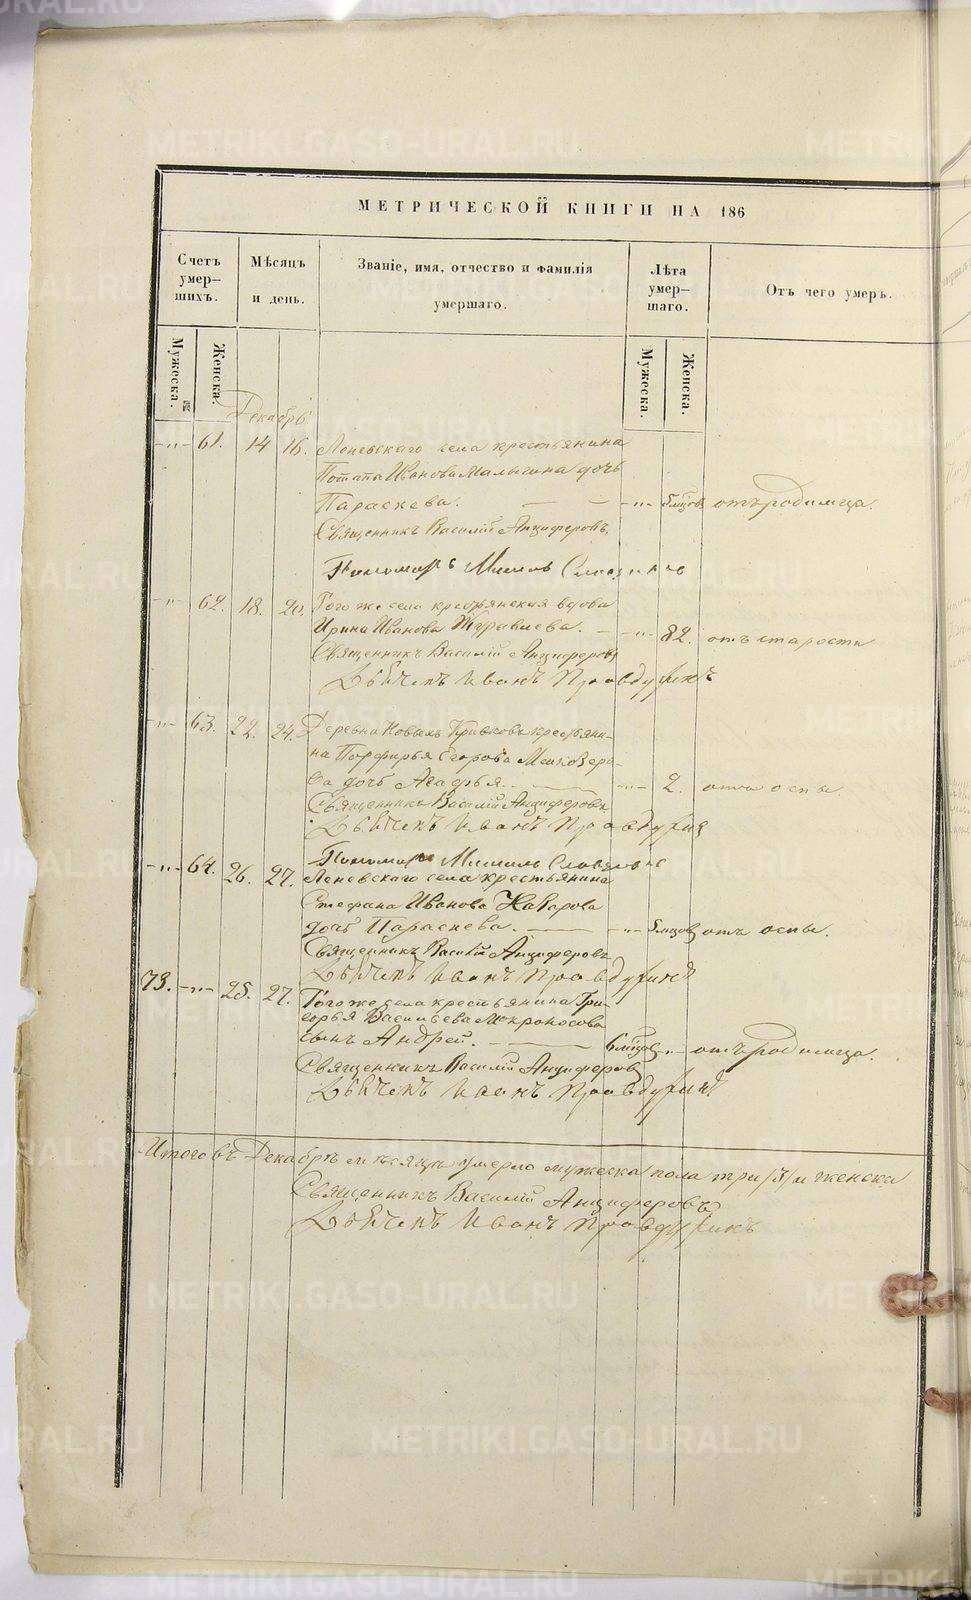 МЕТРИЧЕСКОЙ КНИГИ НА 186
Счетъ умер-шихъ.
Мѣсяцъ и день.
Званіе, имя, отчество и фамилія умершаго.
Лѣта умер-шаго.
Отъ чего умеръ.
Мужеска.
Женска.
Мужеска.
Женска.
Декабрь
-„- 61. 14 16. Леневскаго села крестьянина
Потапа Иванова Малыгина дочь
Параскева. -„- 5 мѣсяц отъ родимца.
Священникъ Василій Анциферовъ.
Пономарь
-„- 62. 18. 20. Того же села крестьянская вдова
Ирина Иванова Журавлева. -„- 82. отъ старости
Священникъ Василій Анциферовъ
Дьячекъ Иванъ Правдухинъ
-„- 63. 22. 24. Деревни Новыхъ Кривковъ крестьяни-
на Порфирья Егорова
ва дочь Агафья. -„- 2. отъ оспы
Священникъ Василій Анциферовъ
Дьячекъ Иванъ Правдухин
Пономарь
-„- 64. 26. 27. Леневскаго села крестьянина
Стефана Иванова Назарова
дочь Параскева. -„- 5 мѣсяцов отъ оспы.
Священникъ Василій Анциферовъ
Дьячекъ Иванъ Правдухинъ
73. -„- 25. 27. Того же села крестьянина Гри-
горья Васильева Мокроносова
сынъ Андрей. 6 мѣсяцов -„- отъ родимца.
Священникъ Василій Анциферовъ
Дьячекъ Иванъ Правдухинъ
Итого въ Декабрѣ мѣсяцѣ умерло мужеска пола три /3/ и женска
Священникъ Василій Анциферовъ
Дьячекъ Иванъ Правдухинъ
METRIKI.GASO-URAL.RU